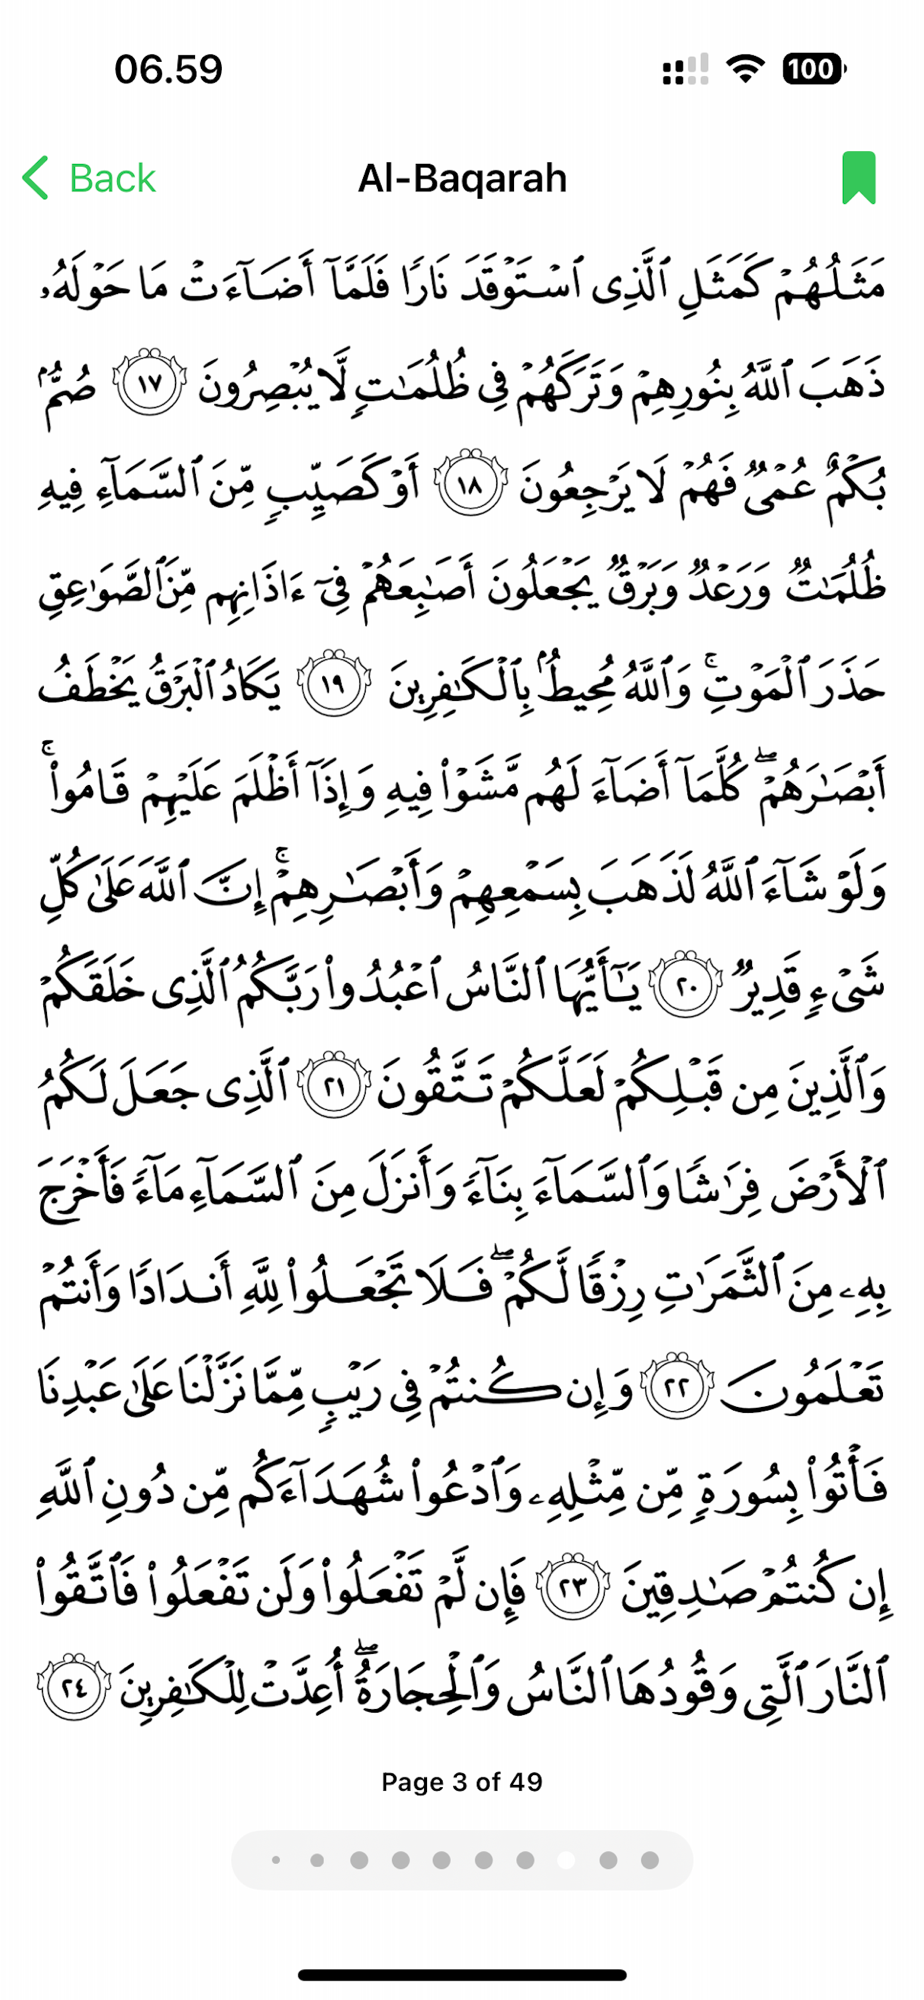 06.59
100
Back
Al-Baqarah
مَثَلُهُمْ كَمَثَلِ ٱلَّذِى ٱسْتَوْقَدَ نَارًا فَلَمَّآ أَضَآءَتْ مَا حَوْلَهُۥ
ذَهَبَ ٱللَّهُ بِنُورِهِمْ وَتَرَكَهُمْ فِى ظُلُمَٰتٍ لَّا يُبْصِرُونَ ١٧ صُمٌّۢ
بُكْمٌ عُمْىٌ فَهُمْ لَا يَرْجِعُونَ ١٨ أَوْ كَصَيِّبٍ مِّنَ ٱلسَّمَآءِ فِيهِ
ظُلُمَٰتٌ وَرَعْدٌ وَبَرْقٌ يَجْعَلُونَ أَصَٰبِعَهُمْ فِىٓ ءَاذَانِهِم مِّنَ ٱلصَّوَٰعِقِ
حَذَرَ ٱلْمَوْتِ ۚ وَٱللَّهُ مُحِيطٌۢ بِٱلْكَٰفِرِينَ ١٩ يَكَادُ ٱلْبَرْقُ يَخْطَفُ
أَبْصَٰرَهُمْ ۖ كُلَّمَآ أَضَآءَ لَهُم مَّشَوْا۟ فِيهِ وَإِذَآ أَظْلَمَ عَلَيْهِمْ قَامُوا۟ ۚ
وَلَوْ شَآءَ ٱللَّهُ لَذَهَبَ بِسَمْعِهِمْ وَأَبْصَٰرِهِمْ ۚ إِنَّ ٱللَّهَ عَلَىٰ كُلِّ
شَىْءٍ قَدِيرٌ ٢٠ يَٰٓأَيُّهَا ٱلنَّاسُ ٱعْبُدُوا۟ رَبَّكُمُ ٱلَّذِى خَلَقَكُمْ
وَٱلَّذِينَ مِن قَبْلِكُمْ لَعَلَّكُمْ تَتَّقُونَ ٢١ ٱلَّذِى جَعَلَ لَكُمُ
ٱلْأَرْضَ فِرَٰشًا وَٱلسَّمَآءَ بِنَآءً وَأَنزَلَ مِنَ ٱلسَّمَآءِ مَآءً فَأَخْرَجَ
بِهِۦ مِنَ ٱلثَّمَرَٰتِ رِزْقًا لَّكُمْ ۖ فَلَا تَجْعَلُوا۟ لِلَّهِ أَندَادًا وَأَنتُمْ
تَعْلَمُونَ ٢٢ وَإِن كُنتُمْ فِى رَيْبٍ مِّمَّا نَزَّلْنَا عَلَىٰ عَبْدِنَا
فَأْتُوا۟ بِسُورَةٍ مِّن مِّثْلِهِۦ وَٱدْعُوا۟ شُهَدَآءَكُم مِّن دُونِ ٱللَّهِ
إِن كُنتُمْ صَٰدِقِينَ ٢٣ فَإِن لَّمْ تَفْعَلُوا۟ وَلَن تَفْعَلُوا۟ فَٱتَّقُوا۟
ٱلنَّارَ ٱلَّتِى وَقُودُهَا ٱلنَّاسُ وَٱلْحِجَارَةُ ۖ أُعِدَّتْ لِلْكَٰفِرِينَ ٢٤
Page 3 of 49